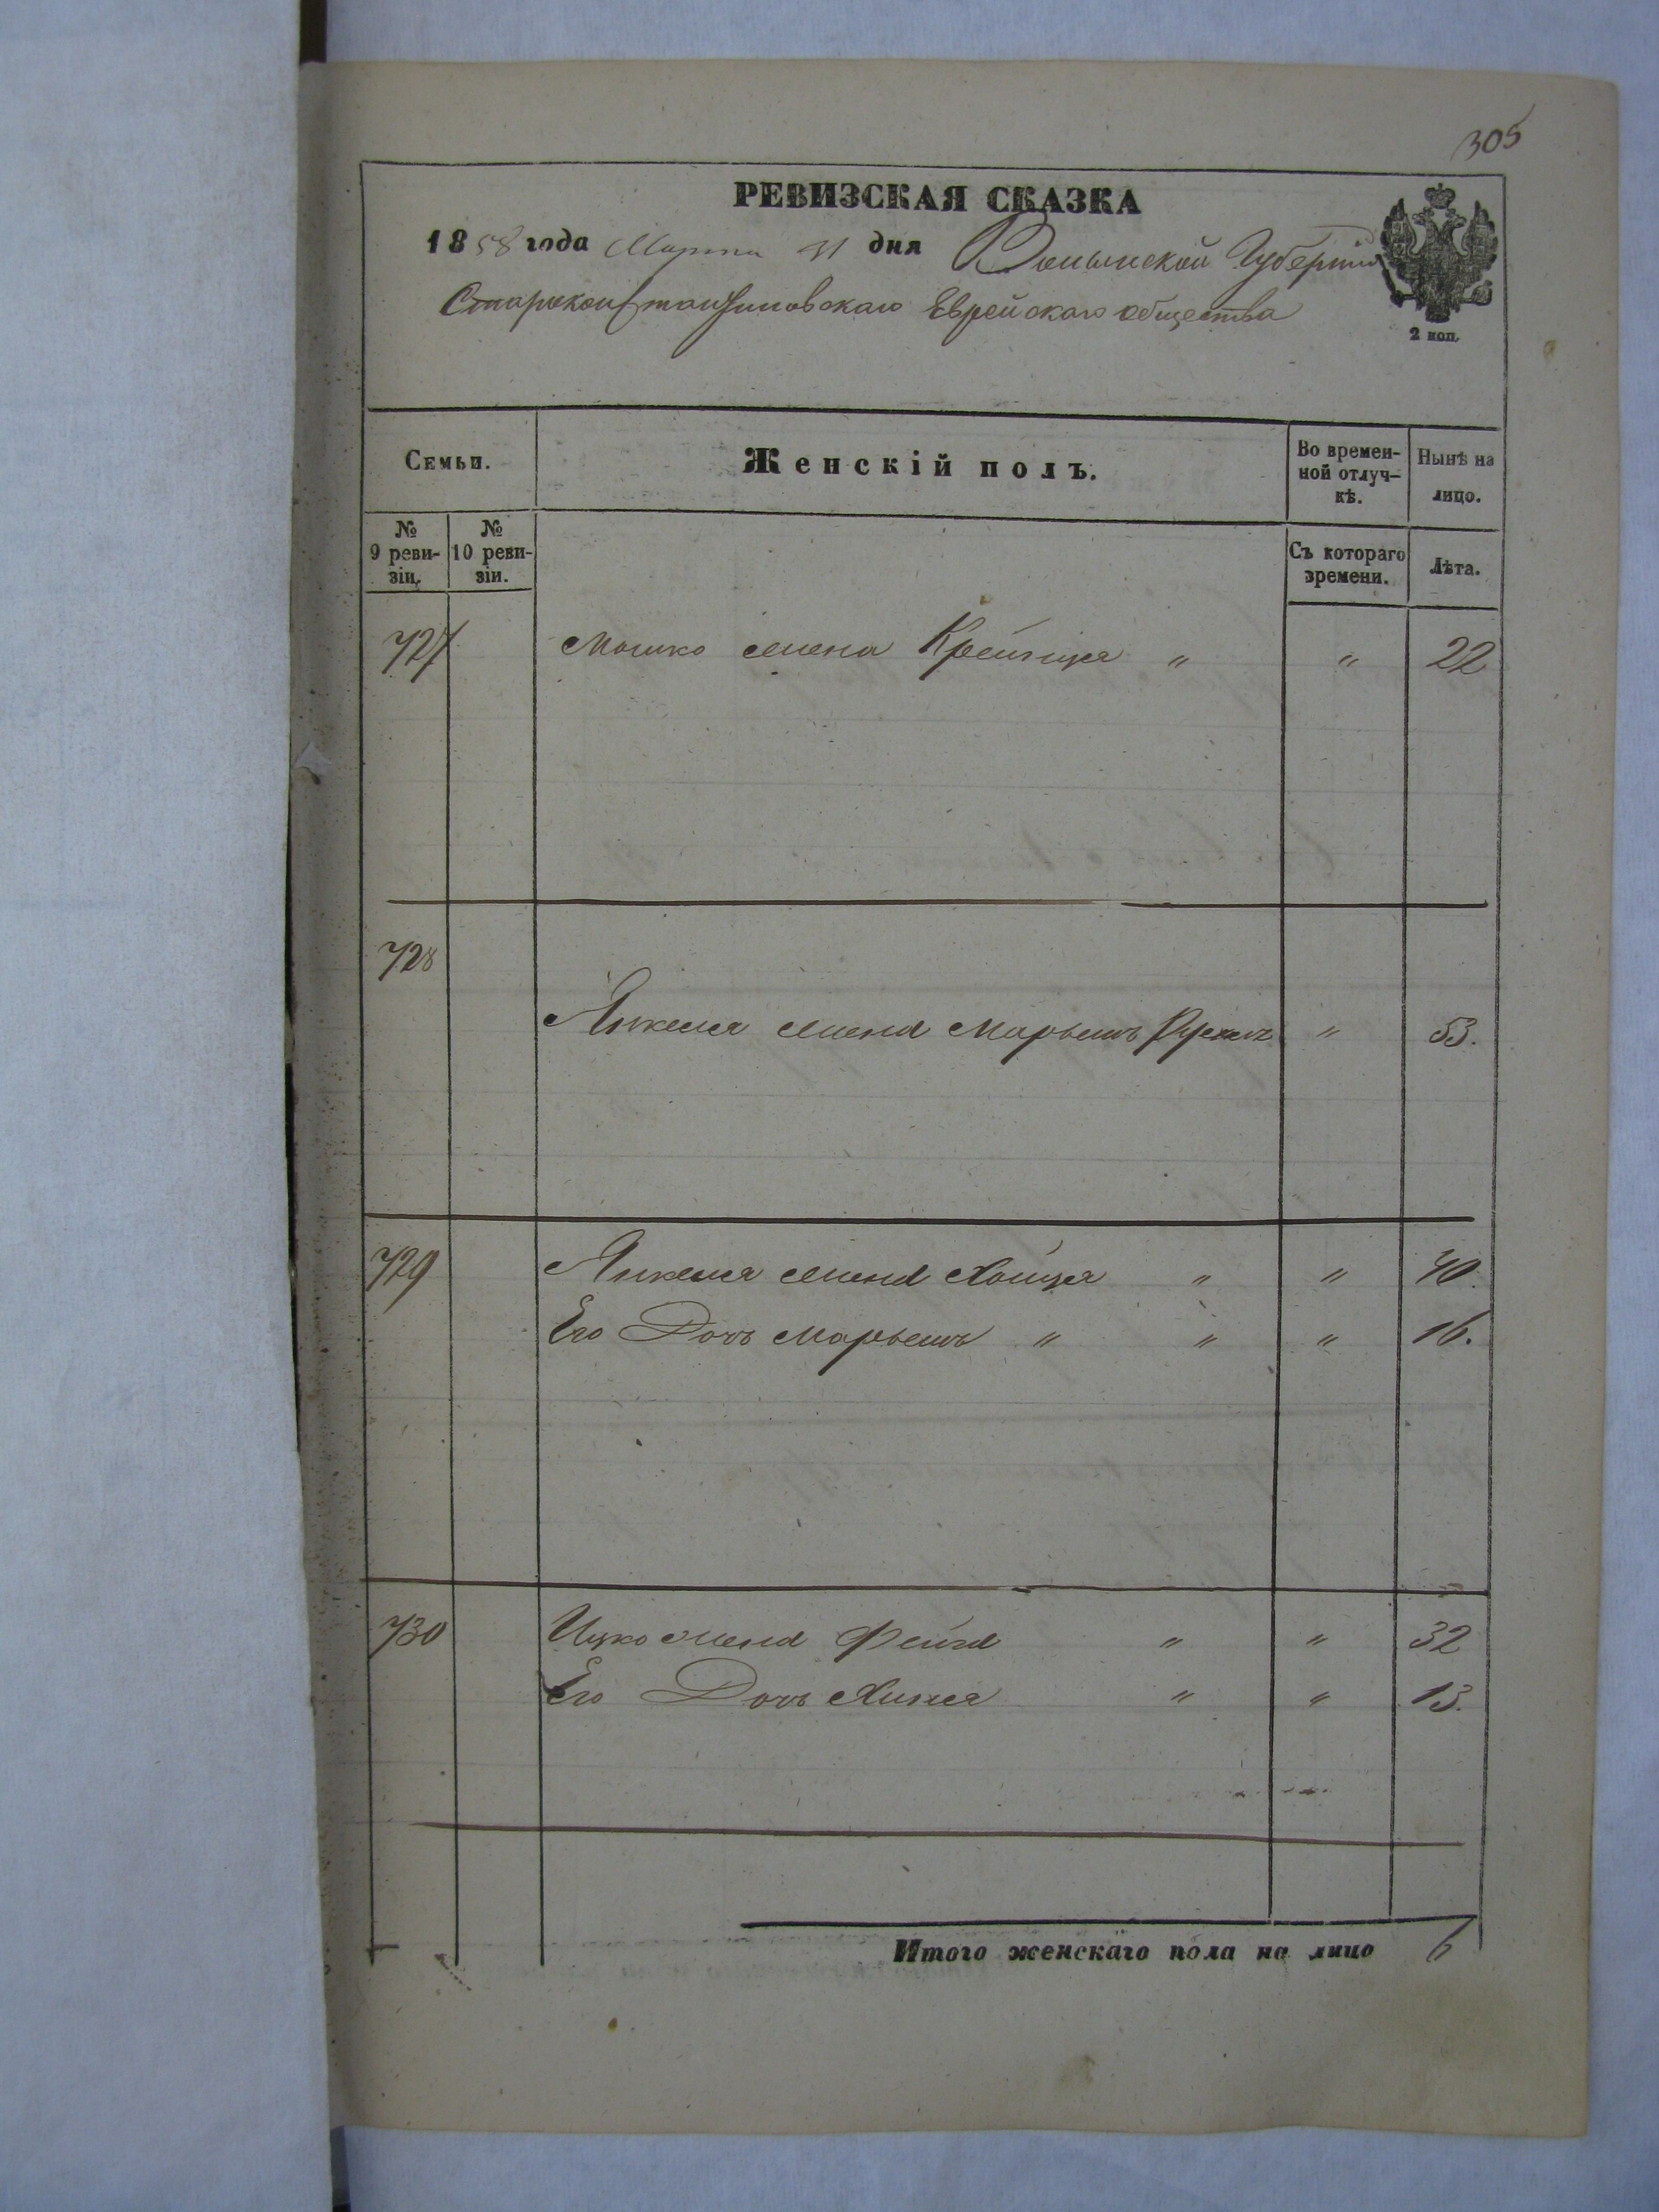 305
РЕВИЗСКАЯ СКАЗКА
1858 года Марта 31 дня Волынской Губернии
Староконстантиновскаго Еврейскаго общества
2 коп.
Семьи.
Женскій полъ.
Во времен-
ной отлуч-
кѣ.
Нынѣ на
лицо.
№
9 реви-
зіи.
№
10 реви-
зіи.
Съ котораго
времени.
Лѣта.
727 Мошко жена Крейнця " " 22
728
Янкеля жена Марьемъ Рухель " 53.
729 Янкеля жена Хайця " " 40.
Его Дочь Марьемъ " " " 16.
730 Ицко жена Фейга " " 32
Его Дочь Хиня " " 13.
Итого женскаго пола на лицо 6